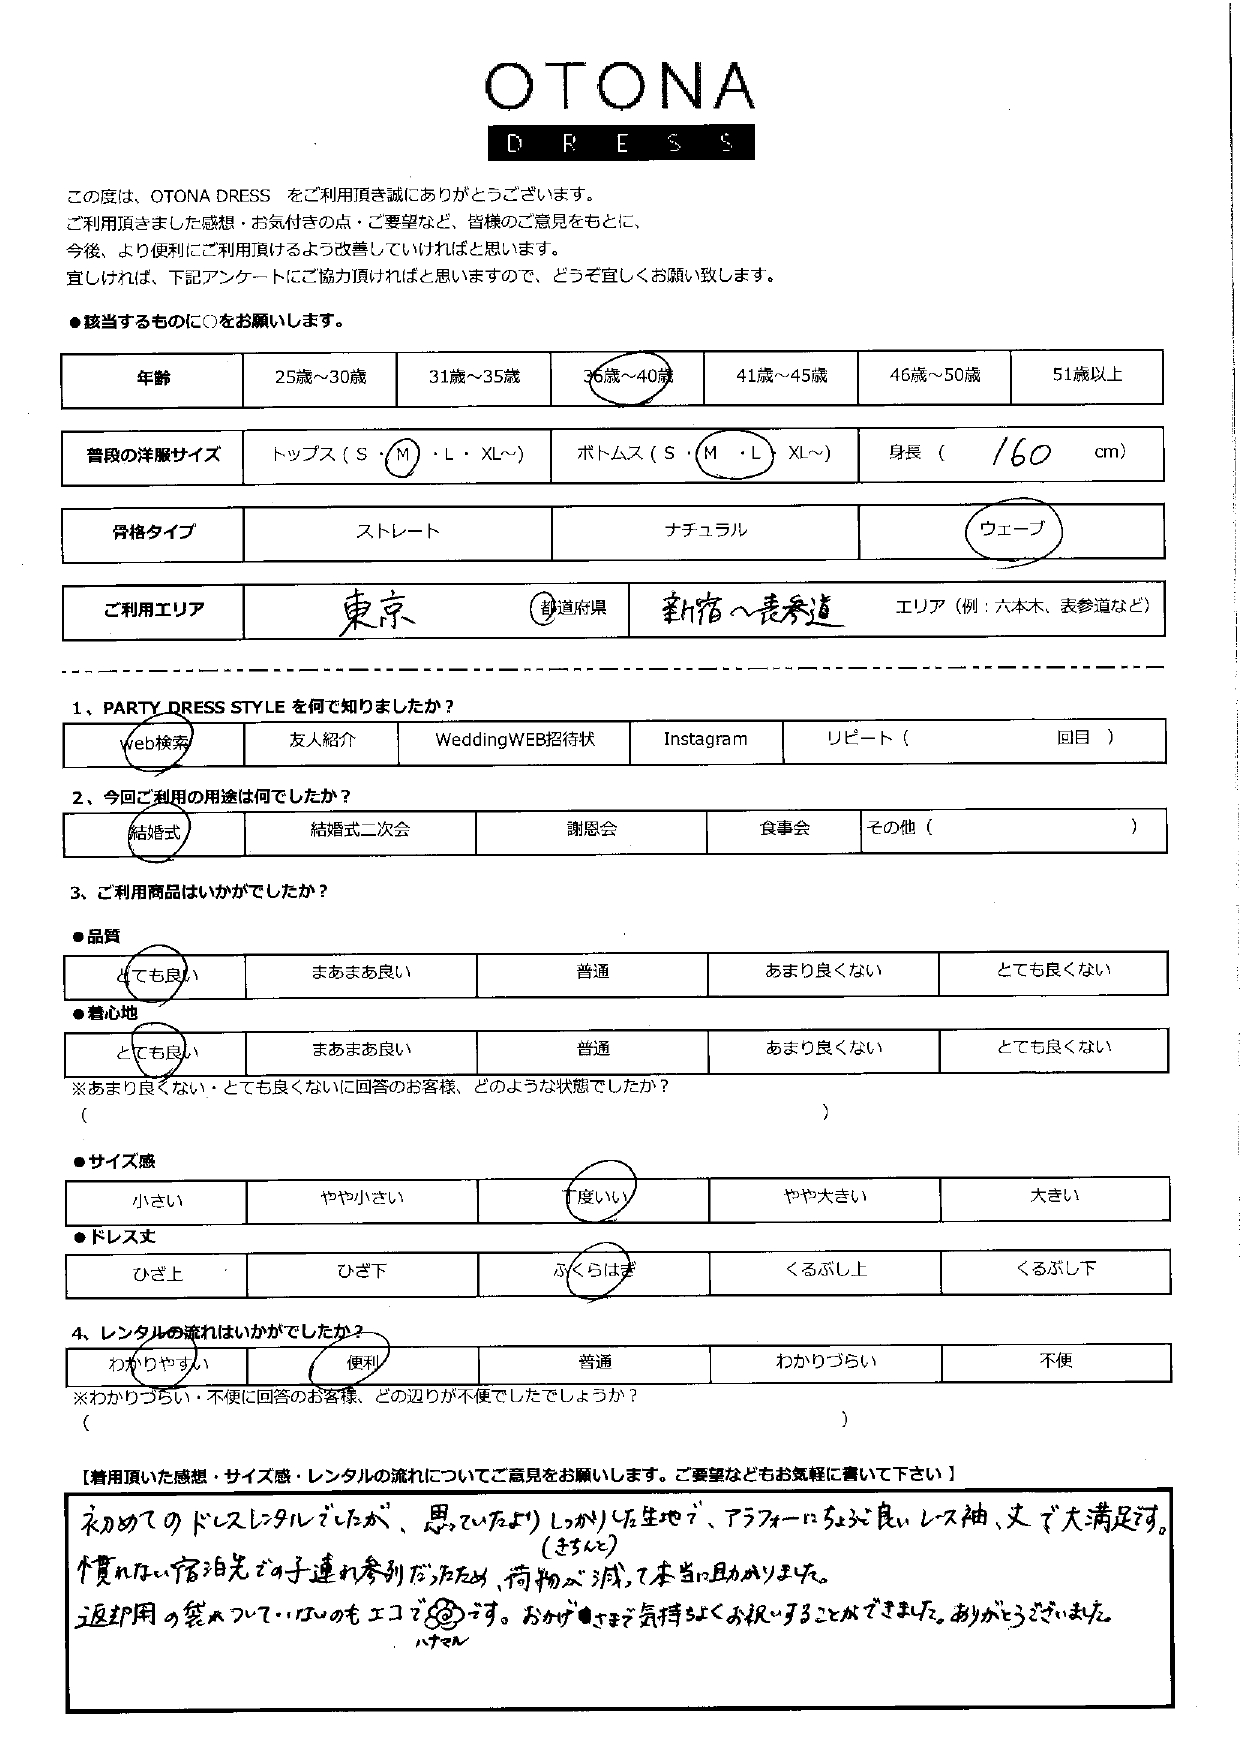 OTONA
DRESS
この度は、OTONA DRESS をご利用頂き誠にありがとうございます。
ご利用頂きました感想・お気付きの点・ご要望など、皆様のご意見をもとに、
今後、より便利にご利用頂けるよう改善していければと思います。
宜しければ、下記アンケートにご協力頂ければと思いますので、どうぞ宜しくお願い致します。
●該当するものに○をお願いします。
年齢 25歳～30歳 31歳～35歳 36歳～40歳 41歳～45歳 46歳～50歳 51歳以上
普段の洋服サイズ トップス ( S ・ M ・ L ・ XL～) ボトムス ( S ・ M ・ L ・ XL～) 身長 ( 160 cm)
骨格タイプ ストレート ナチュラル ウェーブ
ご利用エリア 東京 都道府県 新宿～表参道 エリア（例：六本木、表参道など）
1、PARTY DRESS STYLE を何で知りましたか？
web検索 友人紹介 WeddingWEB招待状 Instagram リピート（ 回目 ）
2、今回ご利用の用途は何でしたか？
結婚式 結婚式二次会 謝恩会 食事会 その他（ ）
3、ご利用商品はいかがでしたか？
●品質
とても良い まあまあ良い 普通 あまり良くない とても良くない
●着心地
とても良い まあまあ良い 普通 あまり良くない とても良くない
※あまり良くない・とても良くないに回答のお客様、どのような状態でしたか？
（ ）
●サイズ感
小さい やや小さい 丁度いい やや大きい 大きい
●ドレス丈
ひざ上 ひざ下 ふくらはぎ くるぶし上 くるぶし下
4、レンタルの流れはいかがでしたか？
わかりやすい 便利 普通 わかりづらい 不便
※わかりづらい・不便に回答のお客様、どの辺りが不便でしたでしょうか？
（ ）
【着用頂いた感想・サイズ感・レンタルの流れについてご意見をお願いします。ご要望などもお気軽に書いて下さい】
初めてのドレスレンタルでしたが、思っていたよりしっかりした生地で、アラフォーにちょうど良いレース袖、丈で大満足です。
(きちんと)
慣れない宿泊先での子連れ参列だったため、荷物が減って本当に助かりました。
返却用の袋がついていないのもエコでです。おかげさまで気持ちよくお祝いすることができました。ありがとうございました。
ハナマル